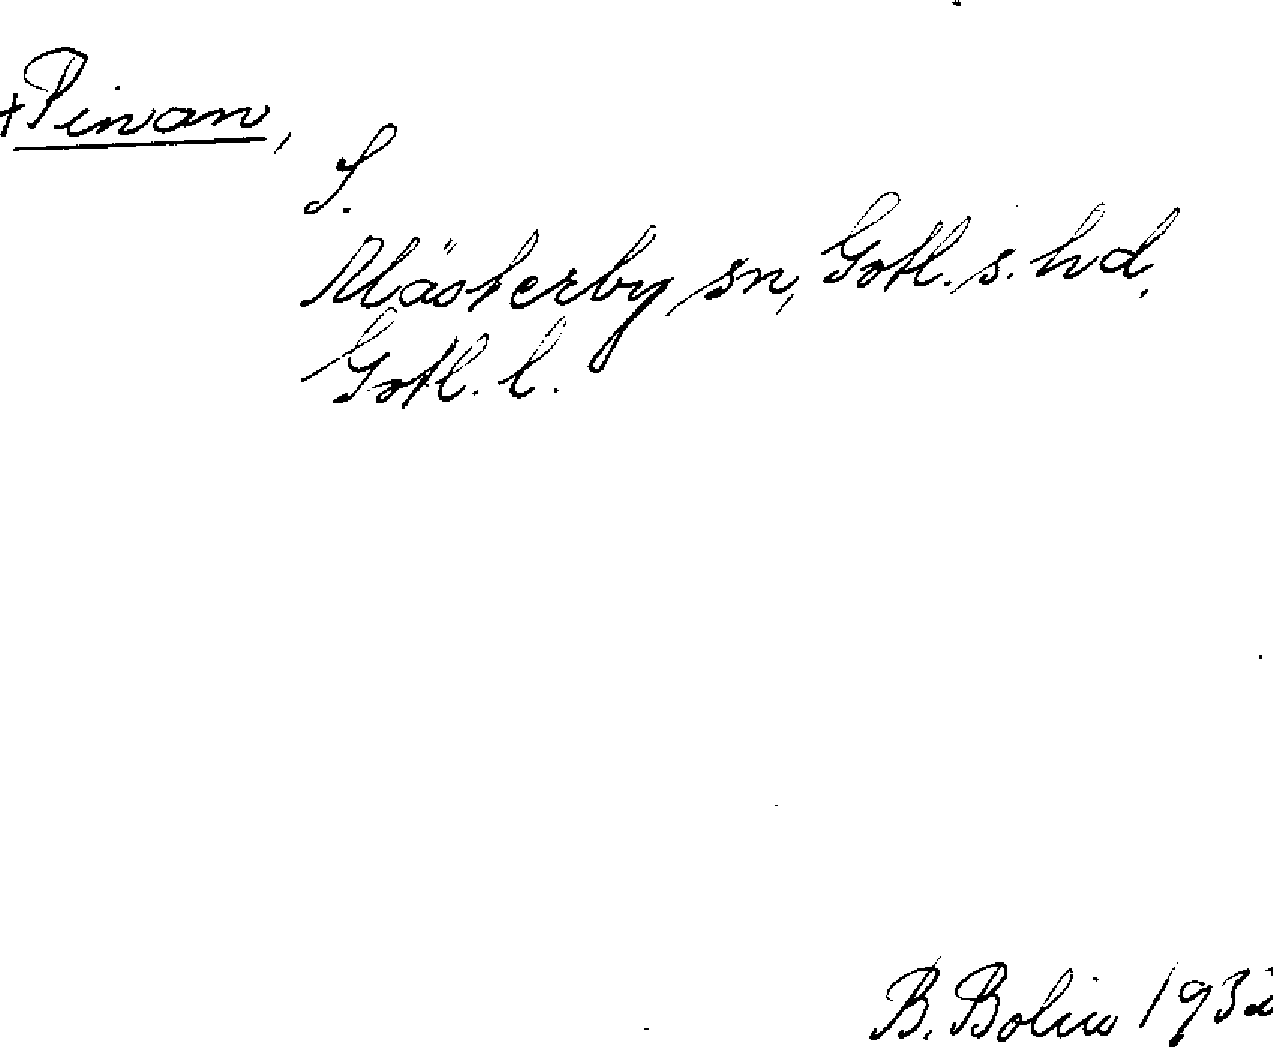 +Pinvan,
S.
Mästerby sn, Gotl. s. hd,
Gotl. l.
B. Bolin 1932